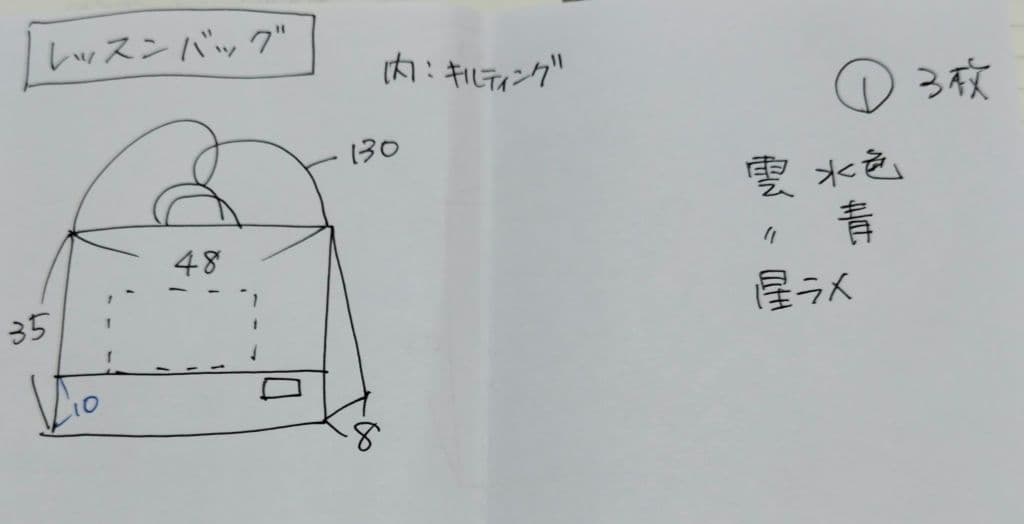 レッスンバッグ
内:キルティング
① 3枚
雲 水色
〃 青
星ラメ
130
48
35
10
8